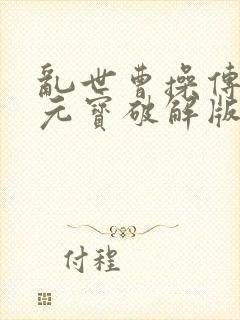 亂世曹操傳
元寶破解版
付程